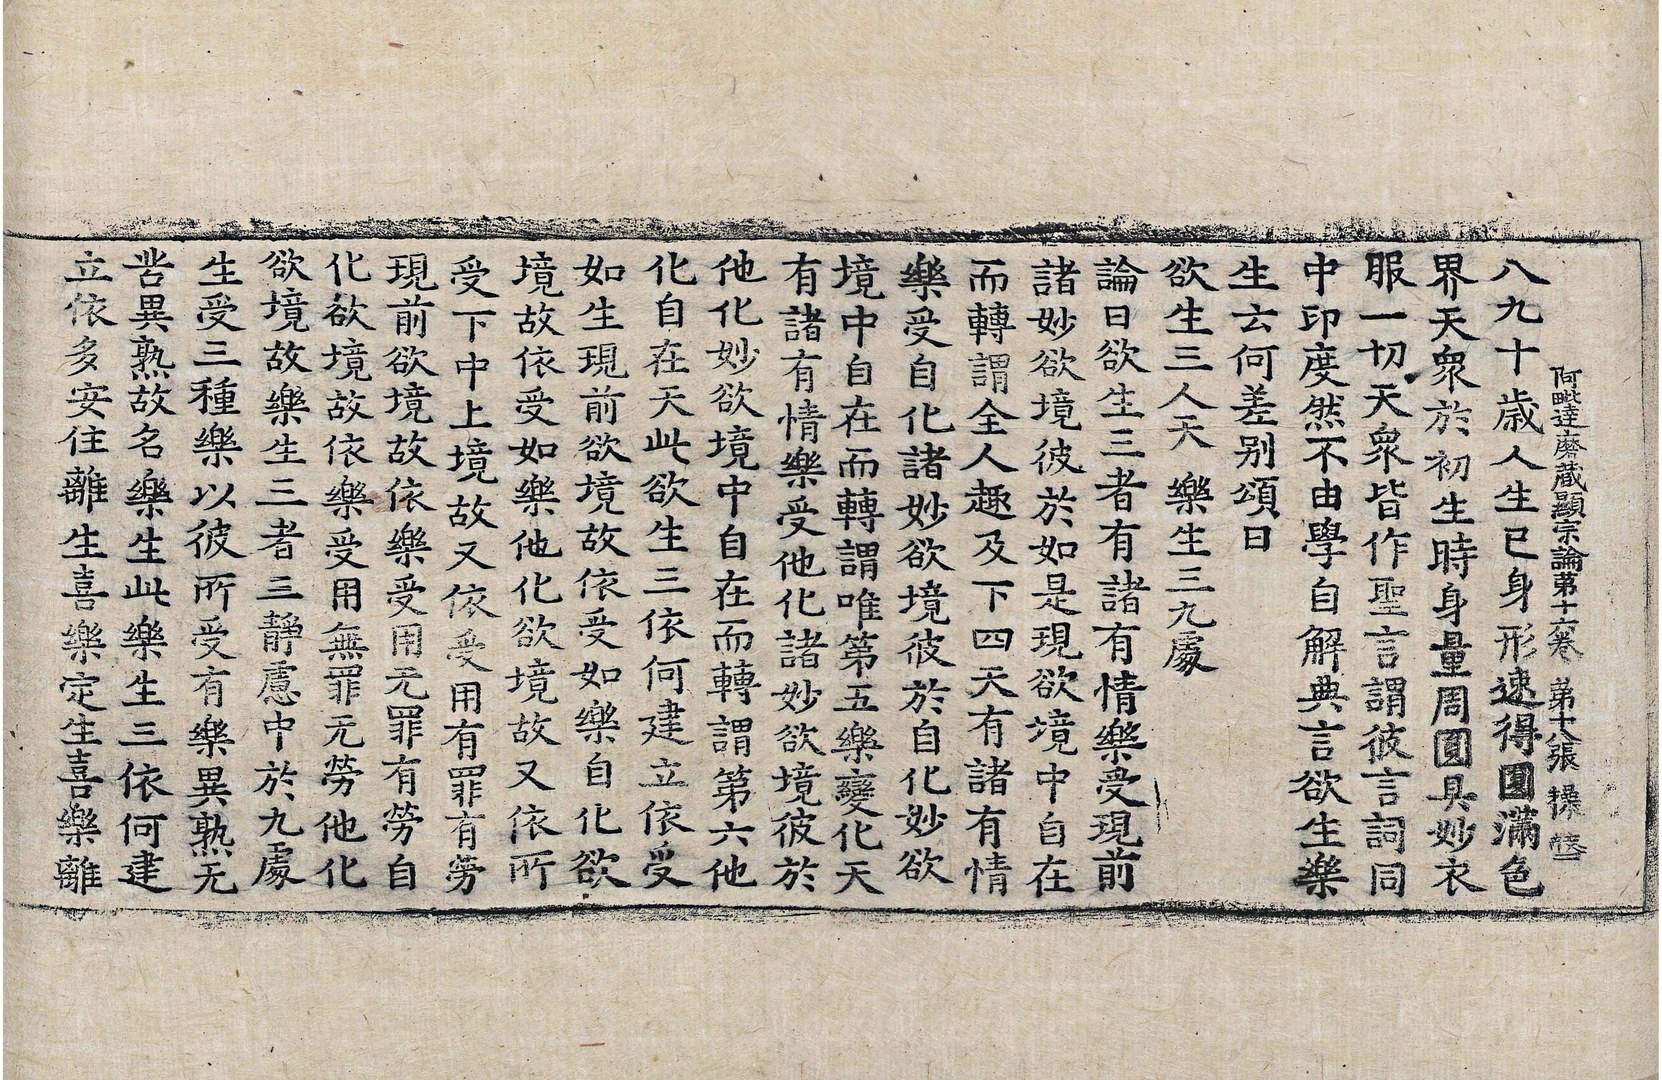 阿毗達磨藏顯宗論第十六卷 第十八張 操
八九十歲人生已身形速得圓滿色
界天衆於初生時身量周圓具妙衣
服一切天衆皆作聖言謂彼言詞同
中印度然不由學自解典言欲生樂
生云何差别頌曰
欲生三人天 樂生三九處
論曰欲生三者有諸有情樂受現前
諸妙欲境彼於如是現欲境中自在
而轉謂全人趣及下四天有諸有情
樂受自化諸妙欲境彼於自化妙欲
境中自在而轉謂唯第五樂變化天
有諸有情樂受他化諸妙欲境彼於
他化妙欲境中自在而轉謂第六他
化自在天此欲生三依何建立依受
如生現前欲境故依受如樂自化欲
境故依受如樂他化欲境故又依所
受下中上境故又依受用有罪有勞
現前欲境故依樂受用无罪有勞自
化欲境故依樂受用無罪无勞他化
欲境故樂生三者三靜慮中於九處
生受三種樂以彼所受有樂異熟无
苦異熟故名樂生此樂生三依何建
立依多安住離生喜樂定生喜樂離